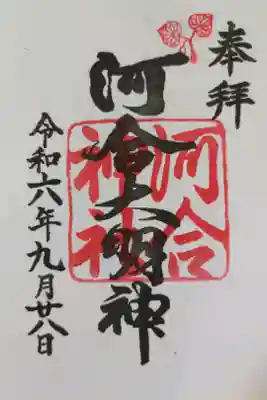 奉拝
河會大明神
河合
神社
令和六年九月廿八日